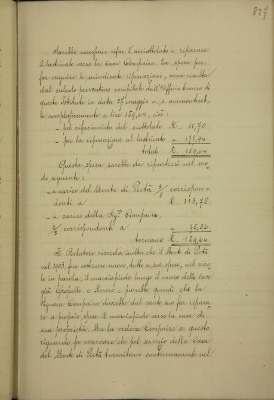 827
Sarebbe necessario rifar l'acciottolato e riparare
il lastricato verso la casa Compaire. La spesa per
far eseguire le suindicate riparazioni, come risulta
dal calcolo preventivo compilato dall'Ufficio tecnico di
questo Istituto in data 27 maggio u. s. ammontava
complessivamente a lire 189,64, cioè:
- per rifacimento del ciottolato £. 11,70
- per la riparazione al lastricato " 177,94
totale £. 189,64
Questa spesa sarebbe da ripartirsi nel mo-
do seguente:
- a carico del Monte di Pietà 3/5 corrispon-
denti a £. 113,78
- a carico della Sig.ra Compaire
2/5 corrispondenti a " 75,86
tornano £. 189,64
Il Relatore ricorda inoltre che il Monte di Pietà
nel 1903, fece costruire nuovo, tutto a sue spese, nel vico-
lo in parola, il marciapiede lungo il muro della casa
già e parrebbe quindi che la
Signora Compaire dovrebbe dal canto suo far ripara-
re a proprie spese il marciapiede verso la casa di
sua proprietà. Ma la vedova Compaire a questo
riguardo fa osservare che pel servizio della casa
del Monte di Pietà transitano continuamente nel